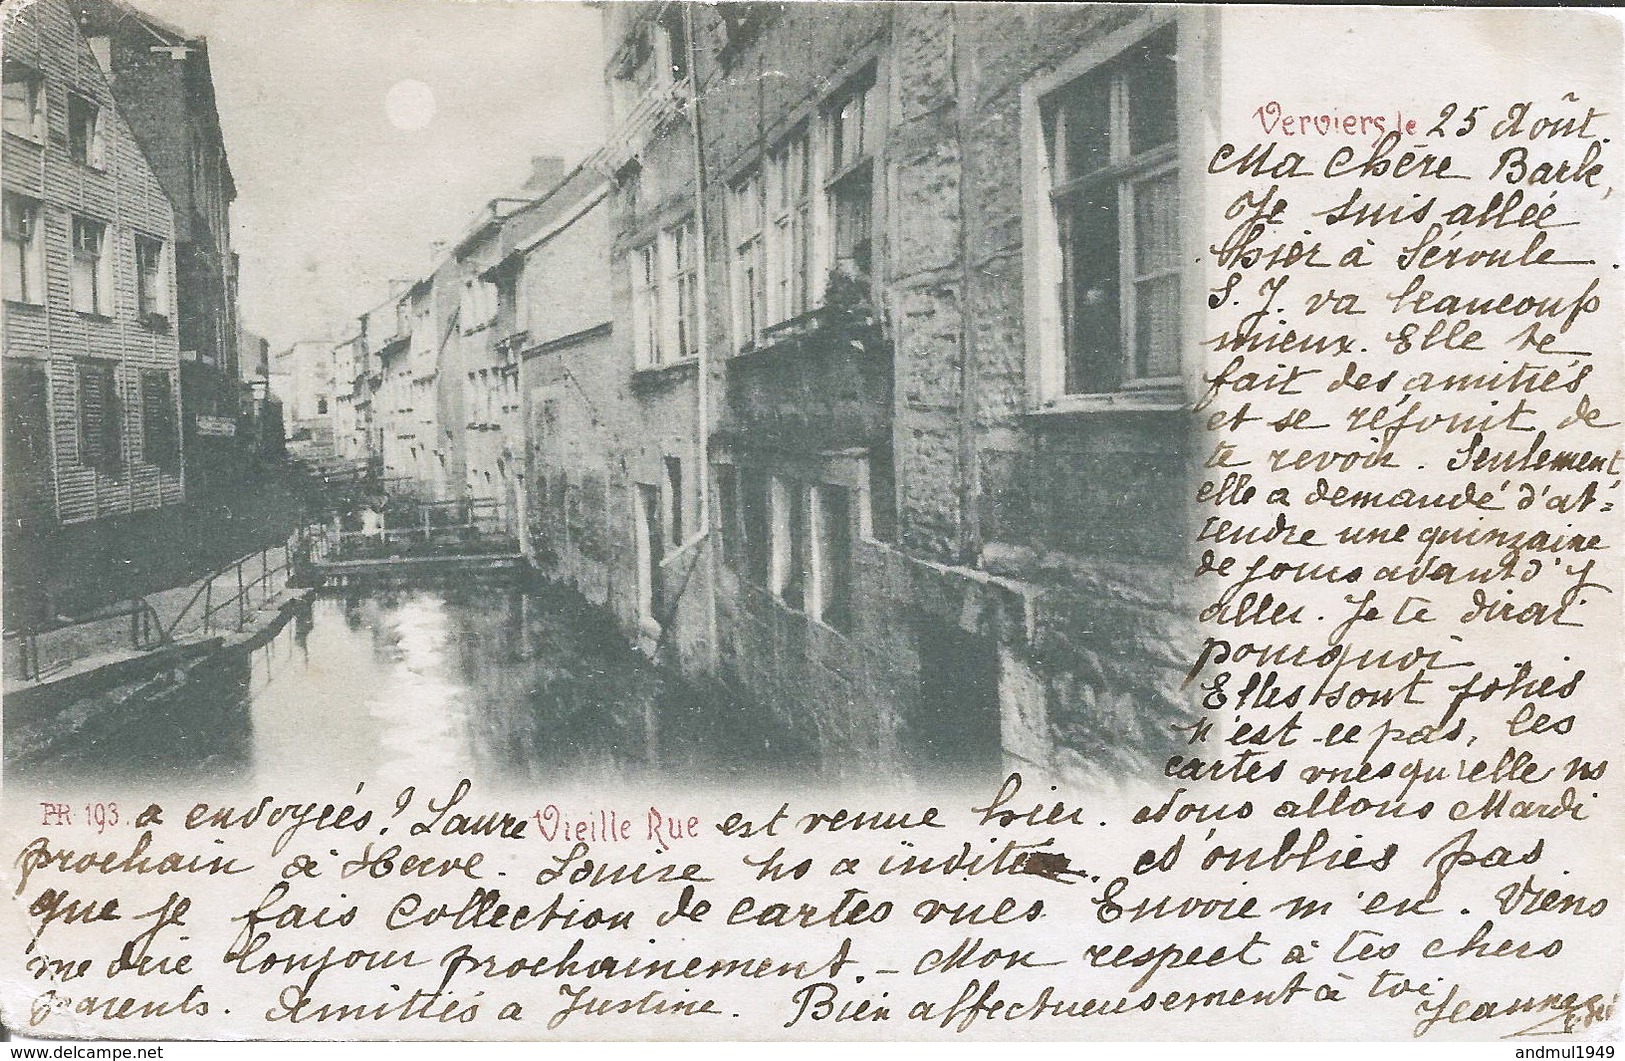 Verviers, le 25 Août.
Ma Chère Barbe,
Je suis allée
hier à Séroule.
S. J. va beaucoup
mieux. Elle te
fait des amitiés
et se réjouit de
te revoir. Seulement
elle a demandé d'at=
tendre une quinzaine
de jours avant d'y
aller. Je te dirai
pourquoi
Elles sont jolies
n'est ce pas, les
cartes vues qu'elle ns
PR 193. a envoyées? Laure Vieille Rue est venue hier. Nous allons Mardi
prochain à Herve. Louise ns a invité. N'oublies pas
que je fais Collection de cartes vues. Envoie m'en. Viens
me dire bonjour prochainement. – Mon respect à tes chers
parents. Amitiés à Justine. Bien affectueusement à toi
Jeanne
andmul1949